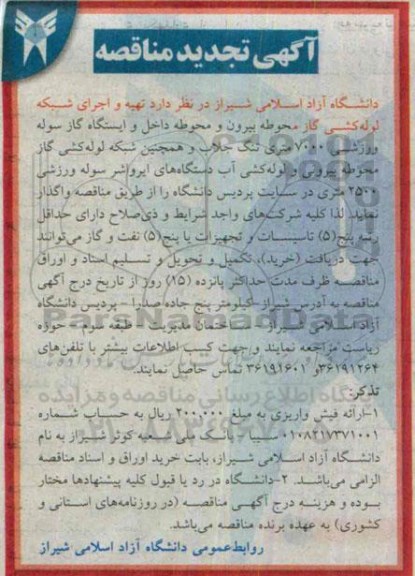 آگهی تجدید مناقصه
دانشگاه آزاد اسلامی شیراز در نظر دارد تهیه و اجرای شبکه
لوله‌کشی گاز محوطه بیرون و محوطه داخل و ایستگاه گاز سوله
ورزشی ۷۰۰۰متری تنگ جلاب و همچنین شبکه لوله‌کشی گاز
محوطه بیرونی و لوله‌کشی آب دستگاه‌های ایرواشر سوله ورزشی
۲۵۰۰ متری در سایت پردیس دانشگاه را از طریق مناقصه واگذار
نماید. لذا کلیه شرکت‌های واجد شرایط و ذی‌صلاح دارای حداقل
رتبه پنج(۵) تاسیسات و تجهیزات یا پنج(۵) نفت و گاز می‌توانند
جهت دریافت (خرید)، تکمیل و تحویل و تسلیم اسناد و اوراق
مناقصه ظرف مدت حداکثر پانزده (۱۵) روز از تاریخ درج آگهی
مناقصه به آدرس شیراز-کیلومتر پنج جاده صدرا - پردیس دانشگاه
آزاد اسلامی شیراز - ساختمان مدیریت - طبقه سوم - حوزه
ریاست مراجعه نمایند و جهت کسب اطلاعات بیشتر با تلفن‌های
۳۶۱۹۱۲۶۴و ۳۶۱۹۱۶۰۱ تماس حاصل نمایند.
تذکر:
۱-ارائه فیش واریزی به مبلغ ۲۰۰,۰۰۰ ریال به حساب شماره
۰۱۰۸۲۱۷۳۷۱۰۰۱ سیبا - بانک ملی شعبه کوثر شیراز به نام
دانشگاه آزاد اسلامی شیراز، بابت خرید اوراق و اسناد مناقصه
الزامی می‌باشد. ۲-دانشگاه در رد یا قبول کلیه پیشنهادها مختار
بوده و هزینه درج آگهی مناقصه (در روزنامه‌های استانی و
کشوری) به عهده برنده مناقصه می‌باشد.
روابط‌عمومی دانشگاه آزاد اسلامی شیراز
ParsNamadData